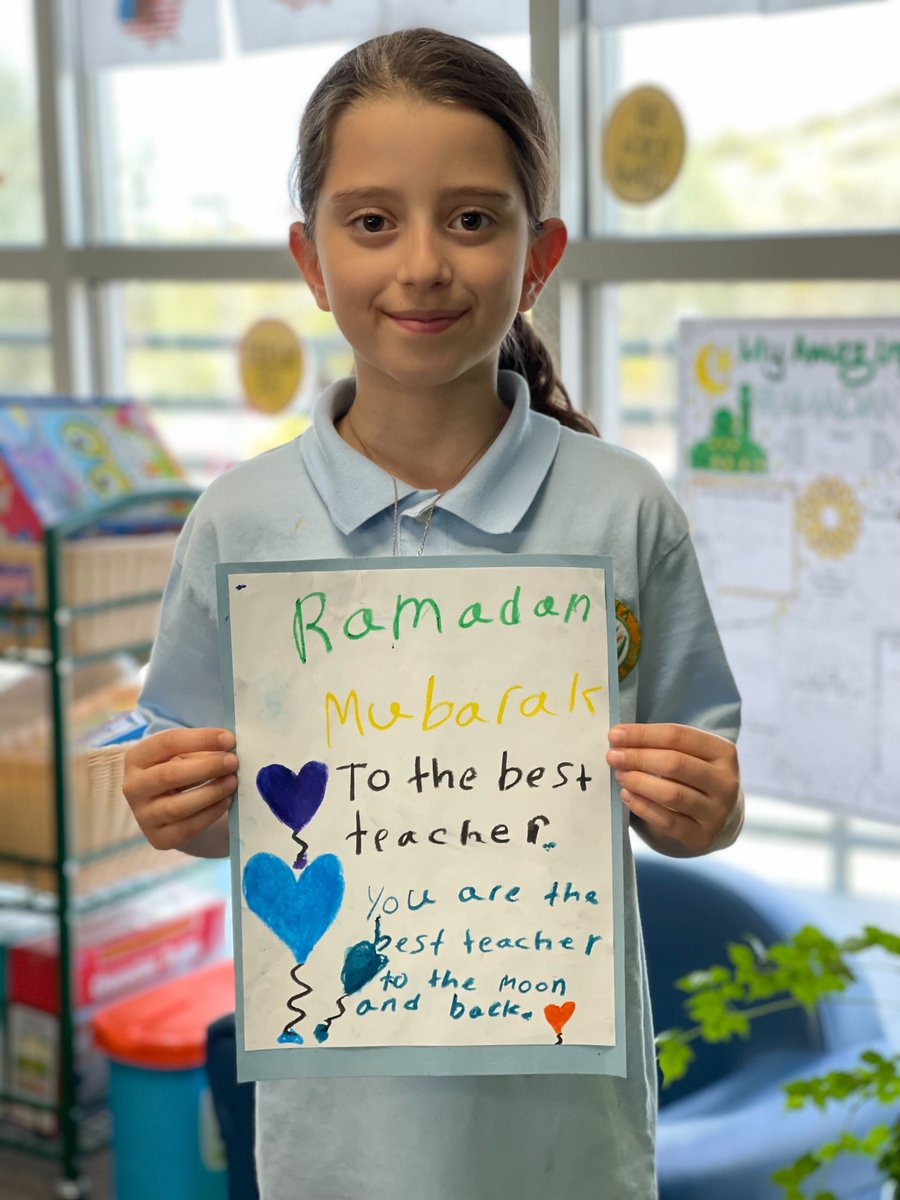 Ramadan
Mubarak
To the best
teacher.
You are the
best teacher
to the moon
and back.
My Amazin
RAMADAN